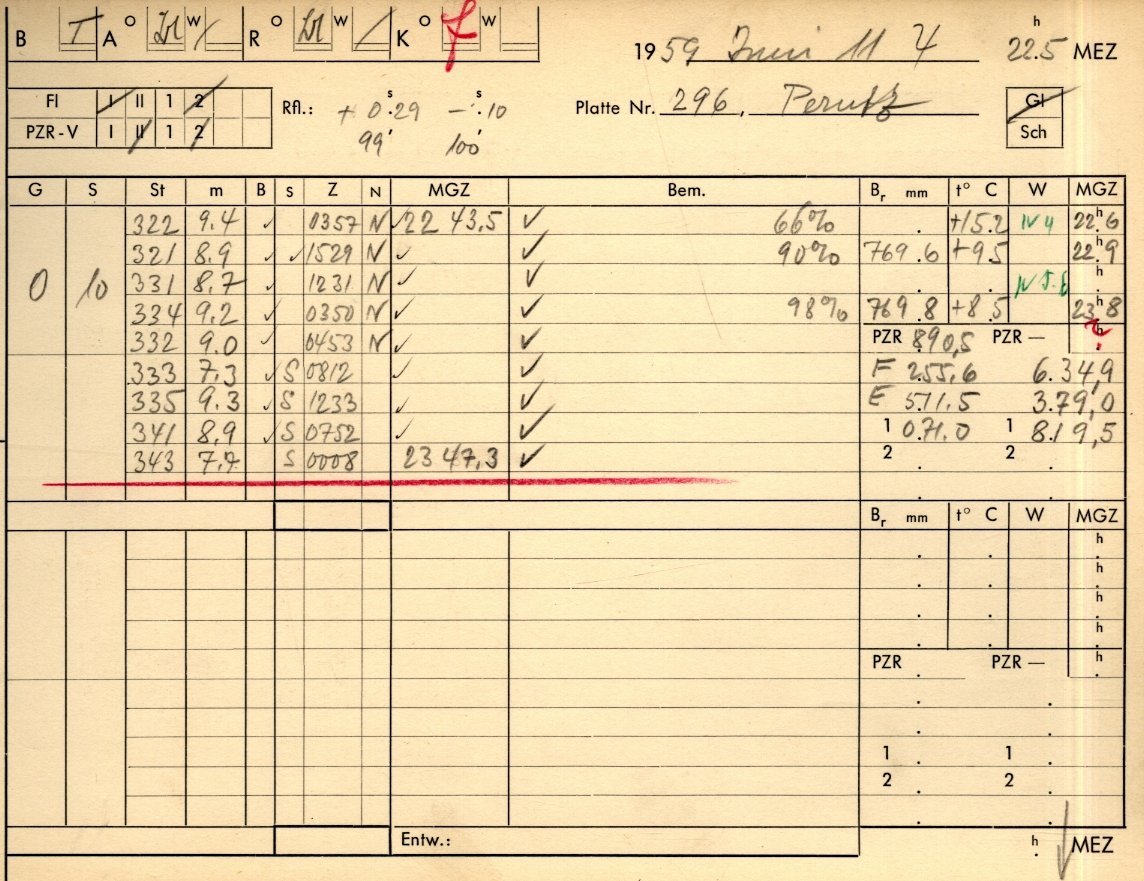 B T A O W R O W K O W
1959 Juni 11 h 22.5 MEZ
Fl I II 1 2
PZR-V I II 1 2
Rfl.: + 0.s29 - .s10
99' 100'
Platte Nr. 296, Perutz
Gl
Sch
G S St m B S Z N MGZ Bem. Br mm t° C W MGZ
322 9.4 ✓ 0357 N ✓ 22 43,5 ✓ 66% . +15.2 22.h6
321 8.9 ✓ ✓ 1529 N ✓ ✓ 90% 769.6 +9.5 22.h9
0 10 331 8.7 ✓ 1231 N ✓ ✓ . . h
334 9.2 ✓ 0350 N ✓ ✓ 98% 769.8 +8.5 23.h8
332 9.0 ✓ 0453 N ✓ ✓ PZR 890,5 PZR — h
333 7.3 ✓ S 0812 ✓ ✓ F 255.6 6.34,9
335 9.3 ✓ S 1233 ✓ ✓ E 571.5 3.79,0
341 8,9 ✓ S 0752 ✓ ✓ 1 071.0 1 819,5
343 7.7 S 0008 23 47,3 ✓ 2 . 2 .
Br mm t° C W MGZ
. . h
. . h
. . h
. . h
PZR . PZR — h
1 . 1 .
2 . 2 .
Entw.: h . MEZ